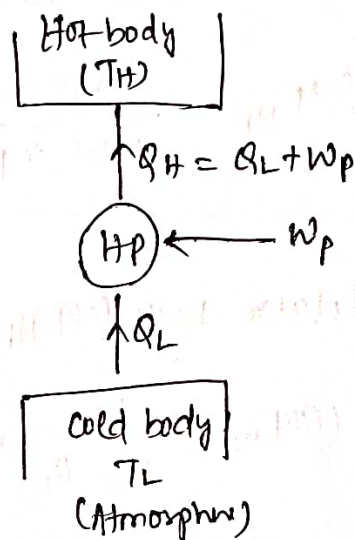 Hot-body
(TH)
QH = QL + Wp
HP
Wp
QL
cold body
TL
(Atmosphere)